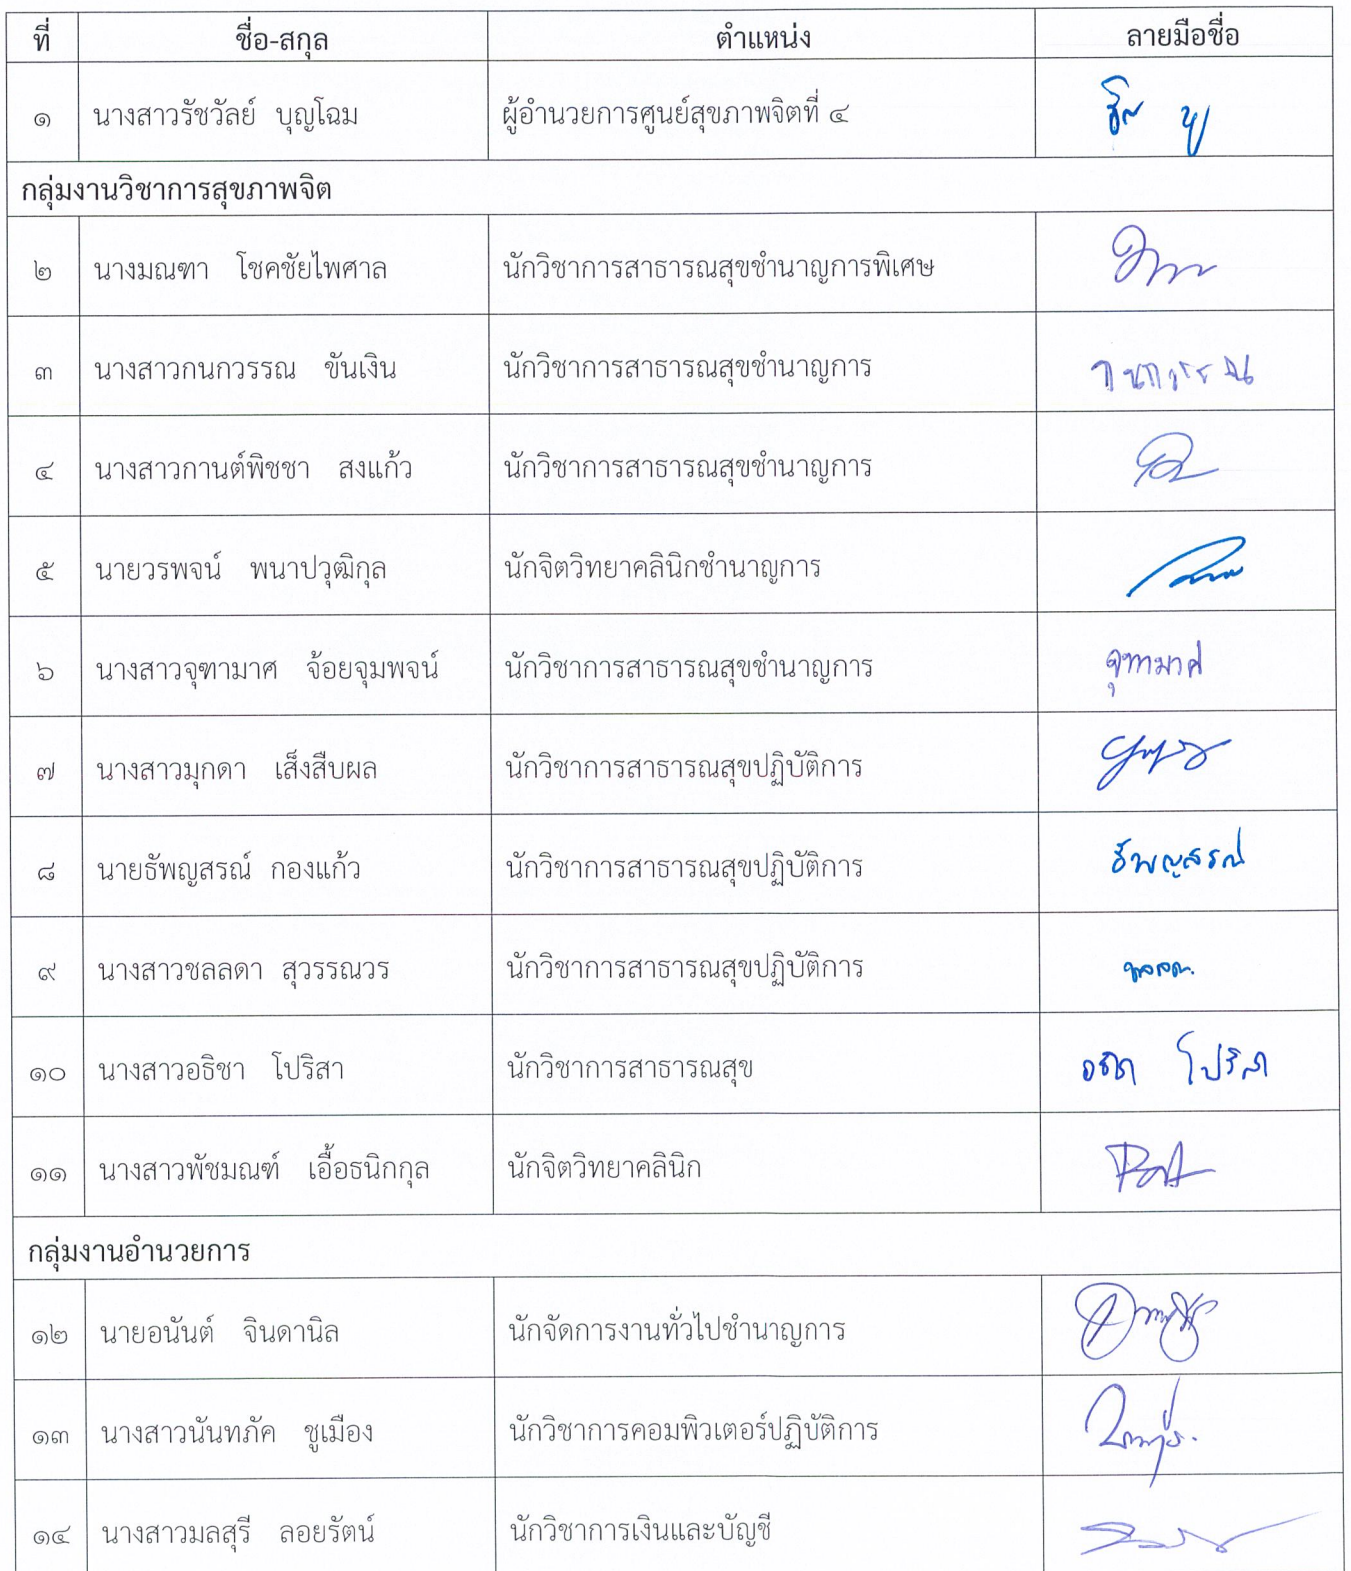 ที่ ชื่อ-สกุล ตำแหน่ง ลายมือชื่อ
๑ นางสาวรัชวัลย์ บุญโฉม ผู้อำนวยการศูนย์สุขภาพจิตที่ ๔
กลุ่มงานวิชาการสุขภาพจิต
๒ นางมณฑา โชคชัยไพศาล นักวิชาการสาธารณสุขชำนาญการพิเศษ
๓ นางสาวกนกวรรณ ขันเงิน นักวิชาการสาธารณสุขชำนาญการ กนกวรรณ
๔ นางสาวกานต์พิชชา สงแก้ว นักวิชาการสาธารณสุขชำนาญการ
๕ นายวรพจน์ พนาปวุฒิกุล นักจิตวิทยาคลินิกชำนาญการ
๖ นางสาวจุฑามาศ จ้อยจุมพจน์ นักวิชาการสาธารณสุขชำนาญการ จุฑามาศ
๗ นางสาวมุกดา เส็งสืบผล นักวิชาการสาธารณสุขปฏิบัติการ
๘ นายธัพญสรณ์ กองแก้ว นักวิชาการสาธารณสุขปฏิบัติการ ธัพญสรณ์
๙ นางสาวชลลดา สุวรรณวร นักวิชาการสาธารณสุขปฏิบัติการ
๑๐ นางสาวอธิชา โปริสา นักวิชาการสาธารณสุข อธิชา โปริสา
๑๑ นางสาวพัชมณฑ์ เอื้อธนิกกุล นักจิตวิทยาคลินิก
กลุ่มงานอำนวยการ
๑๒ นายอนันต์ จินดานิล นักจัดการงานทั่วไปชำนาญการ
๑๓ นางสาวนันทภัค ชูเมือง นักวิชาการคอมพิวเตอร์ปฏิบัติการ
๑๔ นางสาวมลสุรี ลอยรัตน์ นักวิชาการเงินและบัญชี